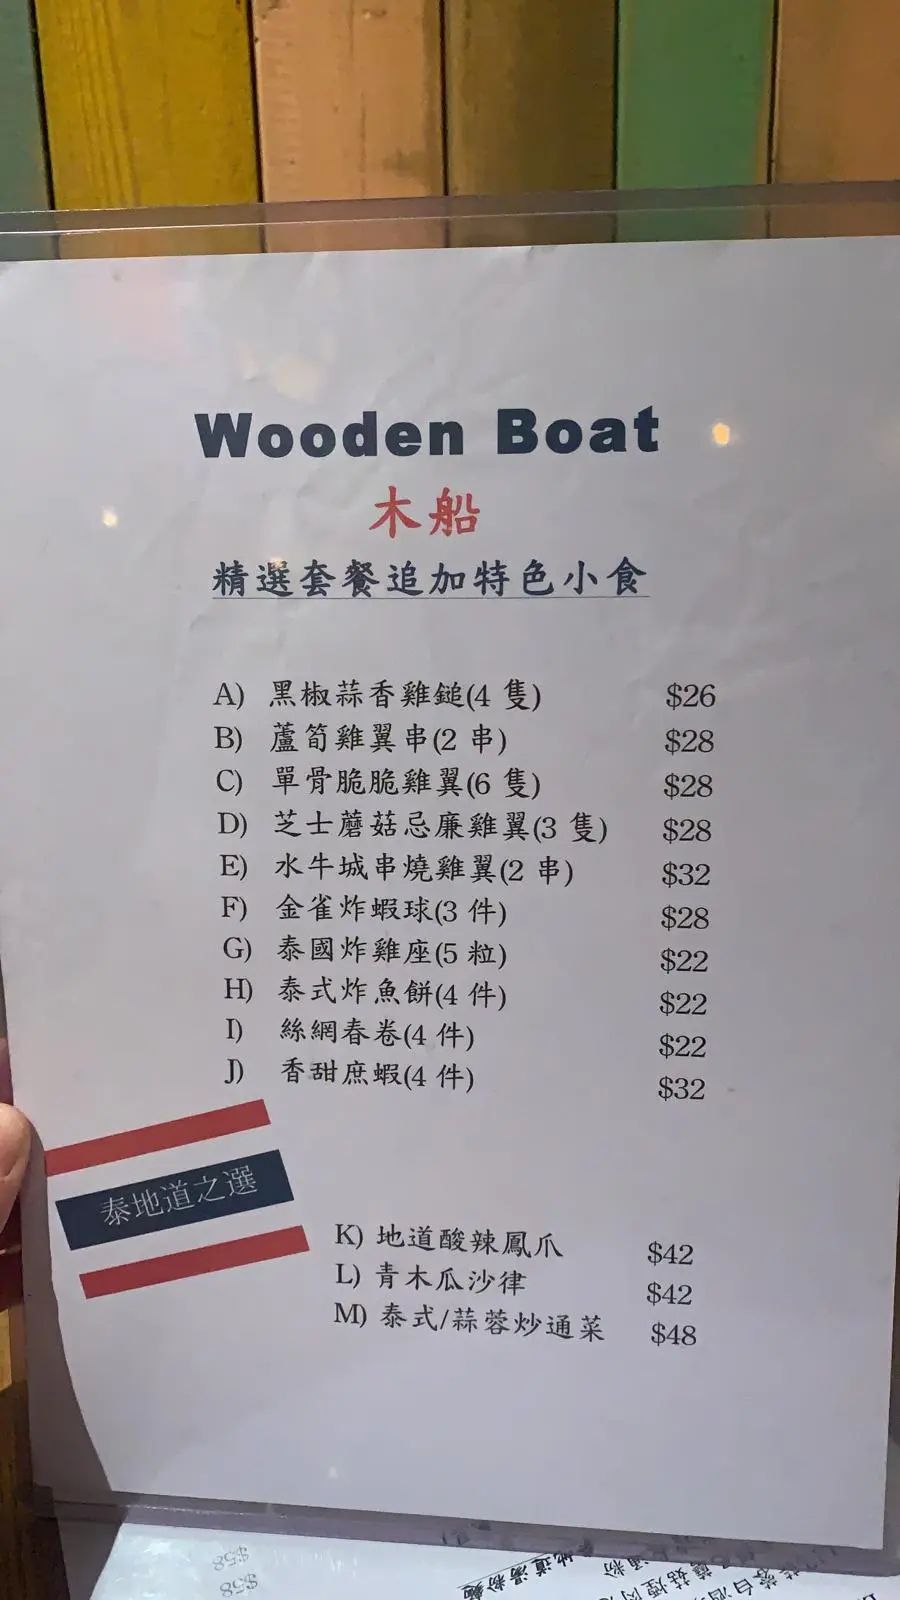 Wooden Boat
木船
精選套餐追加特色小食
A) 黑椒蒜香雞鎚(4 隻) $26
B) 蘆筍雞翼串(2 串) $28
C) 單骨脆脆雞翼(6 隻) $28
D) 芝士蘑菇忌廉雞翼(3 隻) $28
E) 水牛城串燒雞翼(2 串) $32
F) 金雀炸蝦球(3 件) $28
G) 泰國炸雞座(5 粒) $22
H) 泰式炸魚餅(4 件) $22
I) 絲網春卷(4 件) $22
J) 香甜庶蝦(4 件) $32
泰地道之選
K) 地道酸辣鳳爪 $42
L) 青木瓜沙律 $42
M) 泰式/蒜蓉炒通菜 $48
$58
$58
地道湯粉麵